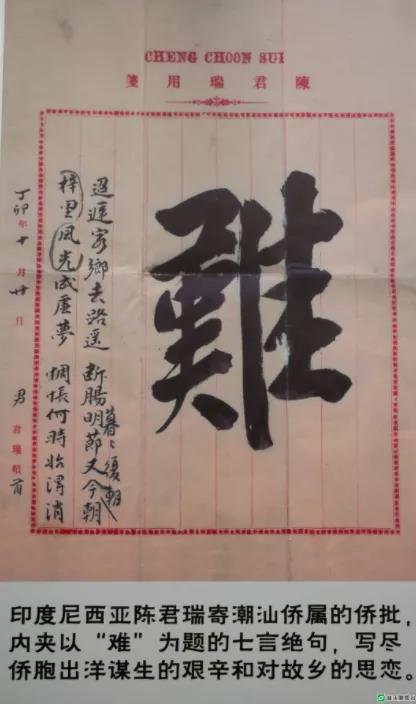 CHENG CHOON SUI
陳君瑞用箋
難
迢遞客鄉去路遥 断腸明節又今朝
暮〻復朝
梓里風光成虛夢 惆悵何時始得消
丁卯年十月廿日 男 君瑞頓首
印度尼西亚陈君瑞寄潮汕侨属的侨批，
内夹以“难”为题的七言绝句，写尽
侨胞出洋谋生的艰辛和对故乡的思恋。